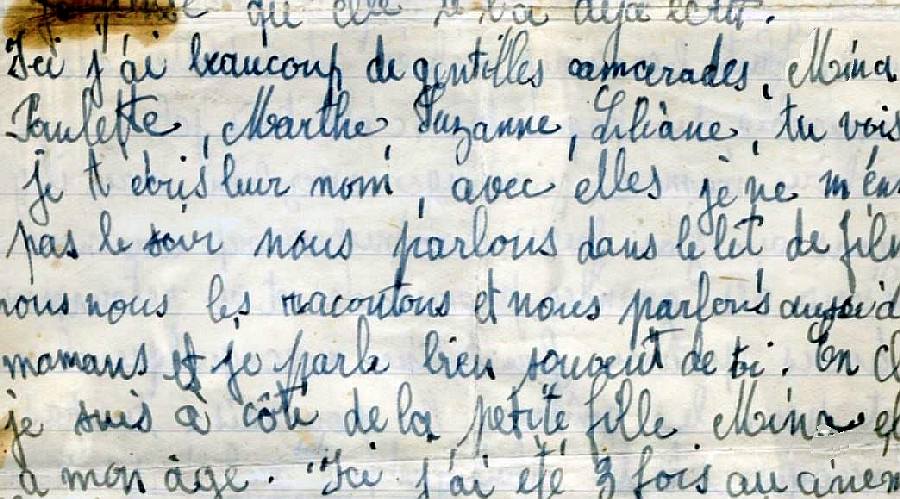 qu elle te l'a déja écrit.
Ici j'ai beaucoup de gentilles camarades, Mina
Paulette, Marthe, Suzanne, Liliane, tu vois
je t écris leur nom, avec elles je ne m'en
pas le soir nous parlons dans le lit de film
nous nous les racontons et nous parlons aussi d
mamans et je parle bien souvent de toi. En cl
je suis à côté de la petite fille Mina el
à mon âge. Ici j'ai été 3 fois au cinem